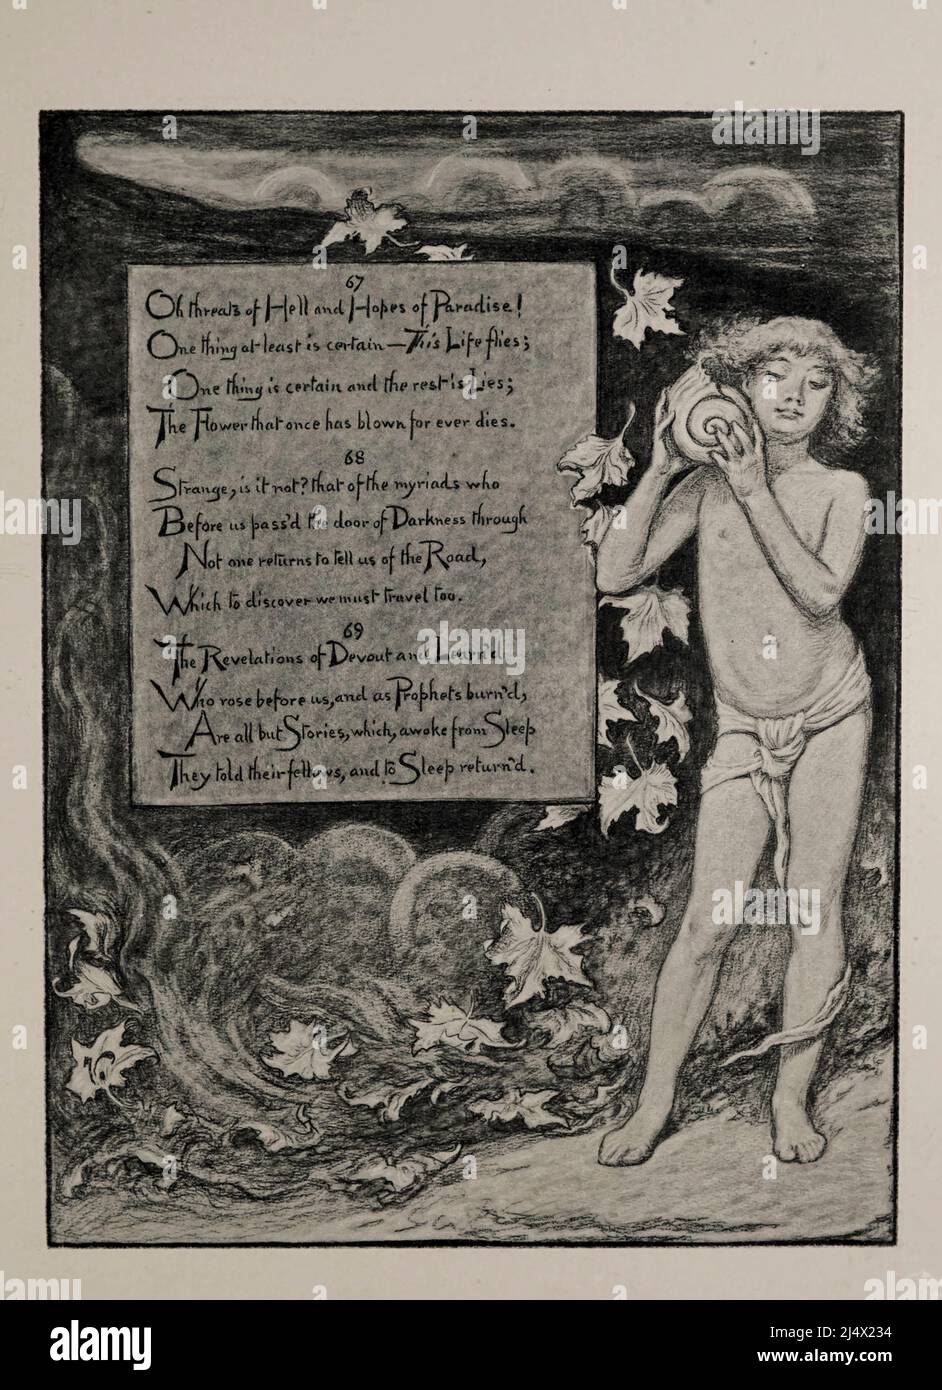 67
Oh threats of Hell and Hopes of Paradise!
One thing at least is certain—This Life flies;
One thing is certain and the rest is Lies;
The Flower that once has blown for ever dies.
68
Strange, is it not? that of the myriads who
Before us pass'd the door of Darkness through
Not one returns to tell us of the Road,
Which to discover we must travel too.
69
The Revelations of Devout and Learn'd
Who rose before us, and as Prophets burn'd,
Are all but Stories, which, awoke from Sleep
They told their fellows, and to Sleep return'd.
alamy
Image ID: 2J4X234
www.alamy.com